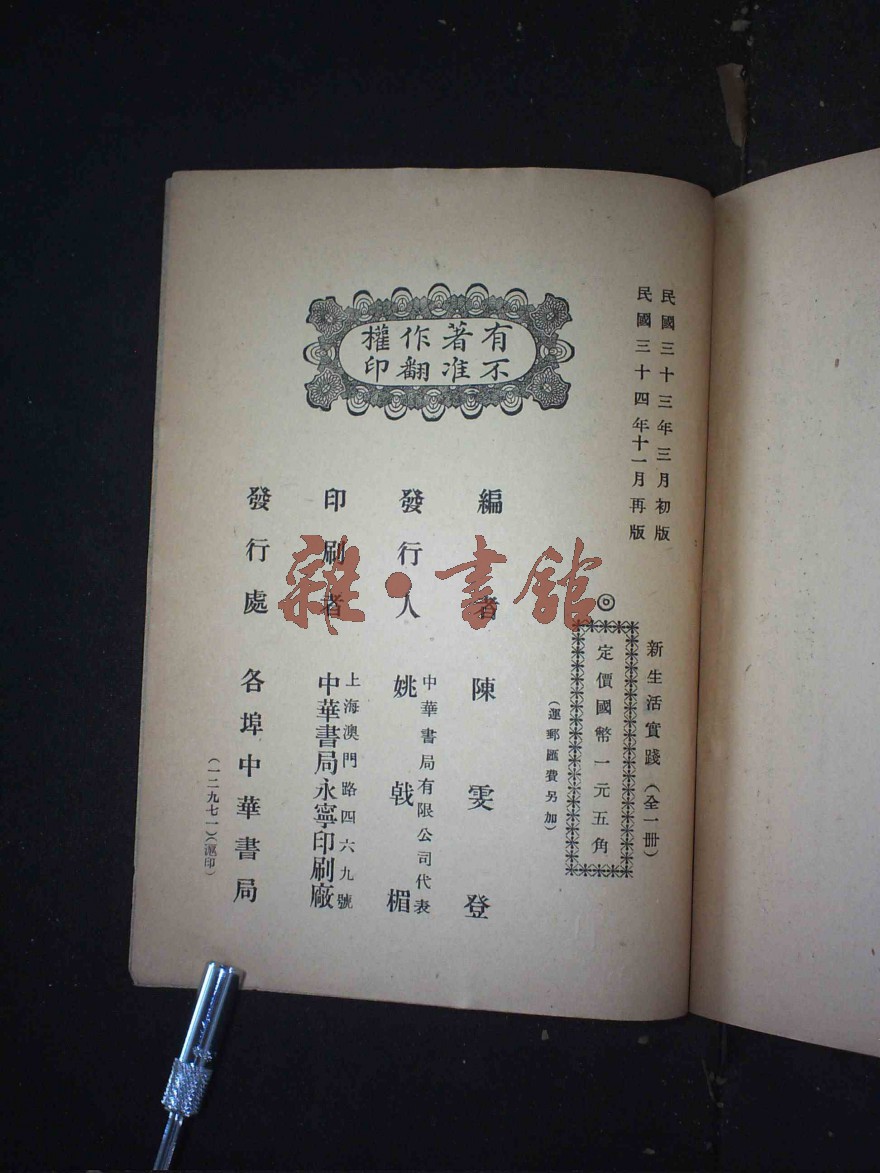 民國三十三年三月初版
民國三十四年十一月再版
新生活實踐（全一冊）
◎
定價國幣一元五角
（運郵匯費另加）
有著作權
不准翻印
編者 陳雯登
發行人 中華書局有限公司代表
姚戟楣
印刷者 上海澳門路四六九號
中華書局永寧印刷廠
發行處 各埠中華書局
（一二九七一）（滬印）
雜·書館